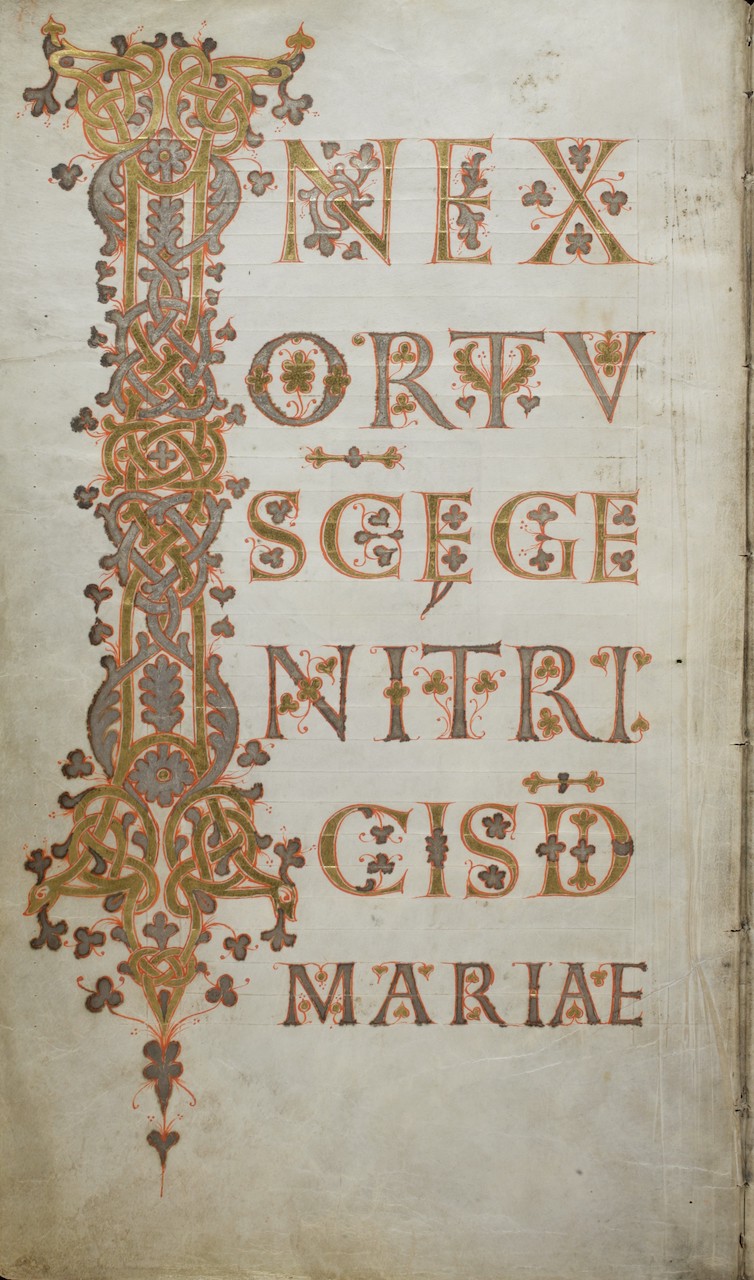 INEX
ORTV
SC̄ĘGE
NITRI
CISD̄
MARIAE